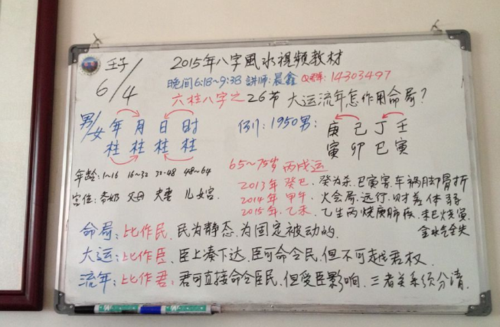 壬子 2015年八字風水視頻教材
6/4 晚间6:18~9:38 讲师:晨鑫 Q: 14303497
六柱八字之26节 大运流年怎作用命局?
男/女 年 月 日 时 例1:1950男: 庚 己 丁 壬
柱 柱 柱 柱 寅 卯 巳 寅
年龄: 1~16 16~32 32-48 48~64 65~75岁 丙戌运
宫位: 爷奶 父母 夫妻 儿女宫 2013年癸巳.癸为杀.巳寅害.车祸脚骨折
2014年甲午.火会局.运行.财产体弱
2015年乙未.乙生丙烧庚肺疾.未巳火寅
命局:比作民.民为静态.为固定被动的.
大运:比作臣:臣上奏下达.臣可命令民.但不可越君权.
流年:比作君:君可直接命令臣民.但受臣影响.三者关系须分清.